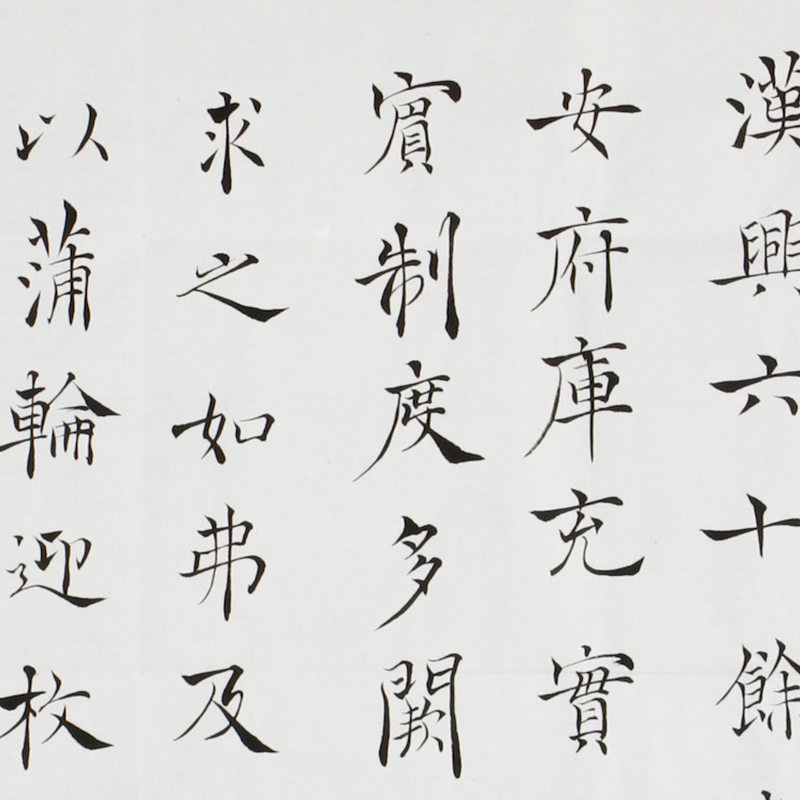 漢興六十餘
安府庫充實
賓制度多闕
求之如弗及
以蒲輪迎枚